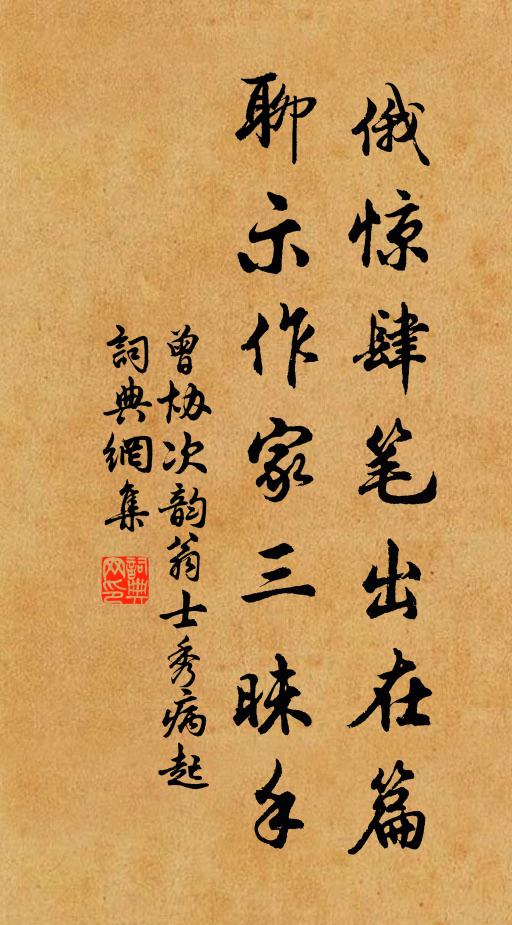 俄惊肆笔出在篇
聊示作家三昧手
曾协次韵翁士秀病起
詞典網集
詞典网印